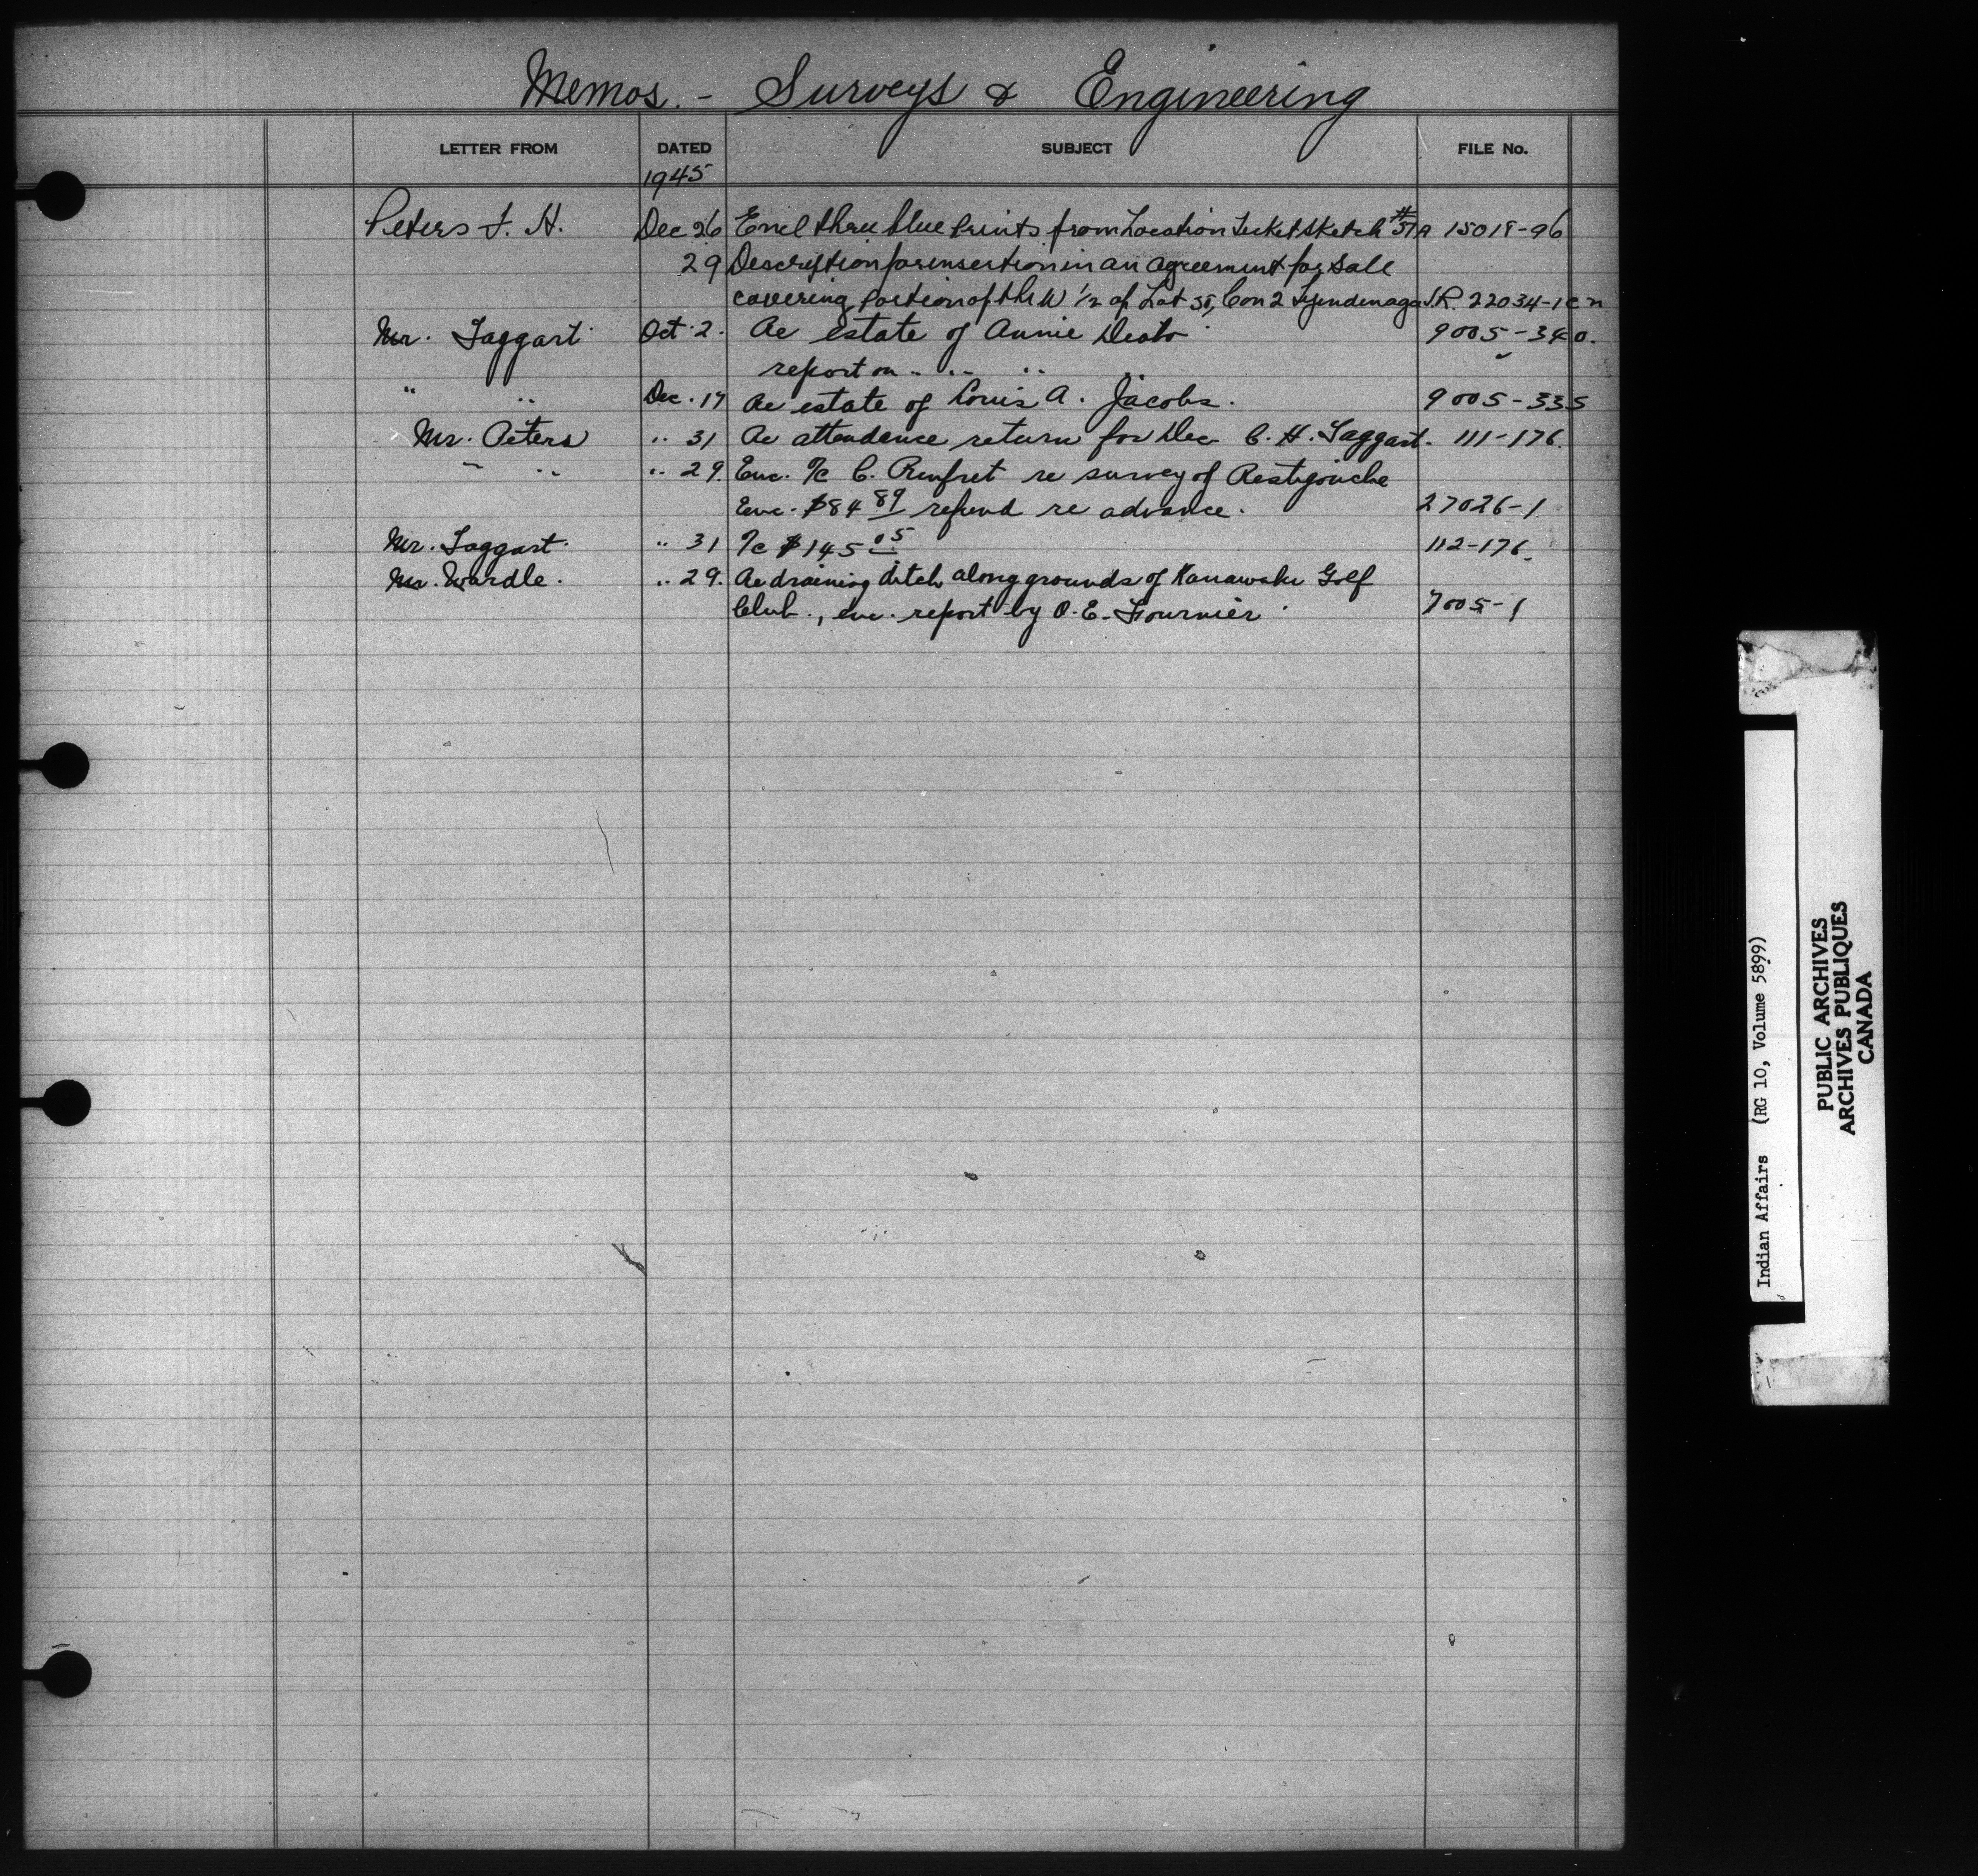 Memos. - Surveys & Engineering
LETTER FROM DATED SUBJECT FILE No.
1945
Peters F. H. Dec 26 Encl three blue prints from Location Ticket Sketch #51A 15018-96
29 Description for insertion in an agreement for sale
covering portion of the W 1/2 of Lot 35, Con 2 Tyendinaga I.R. 22034-1
Mr. Taggart Oct. 2. Re estate of Annie 9005-340.
report on .. .. ..
" .. Dec. 17 Re estate of Louis A. Jacobs. 9005-335
Mr. Peters .. 31 Re attendence return for Dec C. H. Taggart. 111-176.
" .. .. 29. Enc. %c C. Rinfret re survey of Restigouche
Enc. $84 89 refund re advance. 27026-1
Mr. Taggart. .. 31 %c $145 05 112-176.
Mr. Wardle. .. 29. Re draining ditch along grounds of Kanawaki Golf
Club., enc. report by O. E. Fournier 7005-1
Indian Affairs (RG 10, Volume 5899)
PUBLIC ARCHIVES
ARCHIVES PUBLIQUES
CANADA